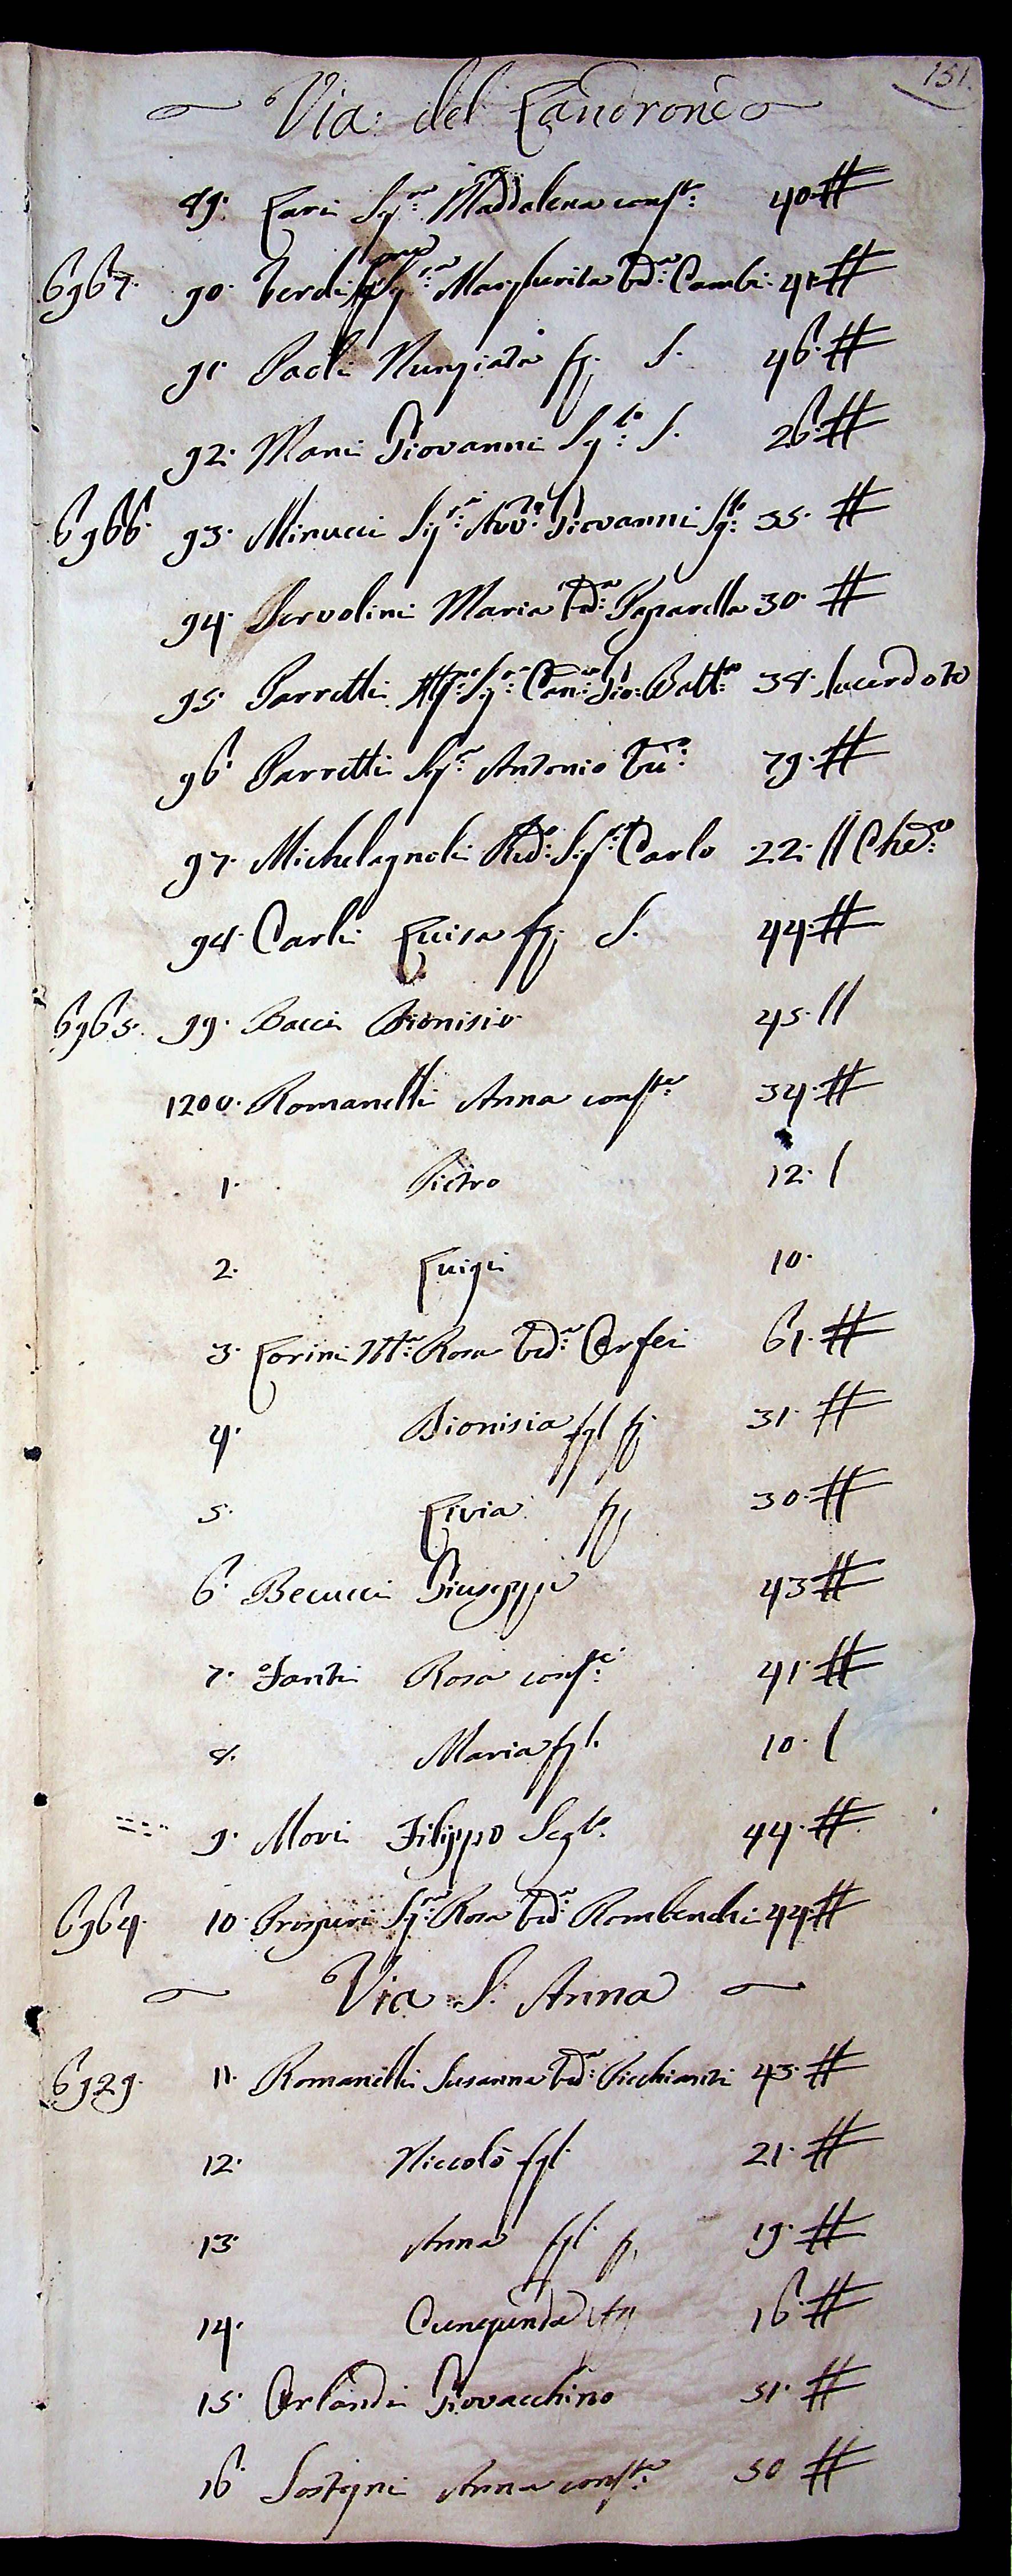 151.
Via del Landrone
89. Lari Sig.ra Maddalena cons.te 40. #
6967. 90. Verdi Sig.ra Margherita Ved.a Cambi. 41 #
91. Paoli Nunziata fg. S. 46. #
92. Mani Giovanni Sg.lo S. 26. #
6966. 93. Minucci Sig.r Avv.o Giovanni Sg.lo 35. #
94. Servolini Maria Ved.a Paparella 30. #
95. Parretti Ill.mo Sig.r Can.co Gio: Batt.a 38. Sacerdote
96. Parretti Sig.r Antonio Vd.o 79. #
97. Michelagnoli Red.o Sig.r Carlo 22. // Che.co
98. Carli Luisa fg. S. 44. #
6965. 99. Bacci Dionisio 45. //
1200. Romanelli Anna cons.te 34. #
1. Pietro 12. /
2. Luigi 10.
3. Lorini M.a Rosa Ved.a Orfei 61. #
4. Dionisia fgl fg. 31. #
5. Livia fg 30. #
6. Becucci Giuseppe 43 #
7. Fanti Rosa cons.e 41. #
8. Maria fgl. 10. /
9. Movi Filippo Scg.lo 44. #
6964. 10. Prosperi Sig.ra Rosa Ved.a Rombenchi 44. #
Via S. Anna
6929. 11. Romanelli Susanna Ved.a Picchianti 43. #
12. Niccolò fgl. 21. #
13. Anna fgl. fg, 19. #
14. Cunegunda 16. #
15. Orlandi Giovacchino 51. #
16. Sostegni Anna cons.te 50 #